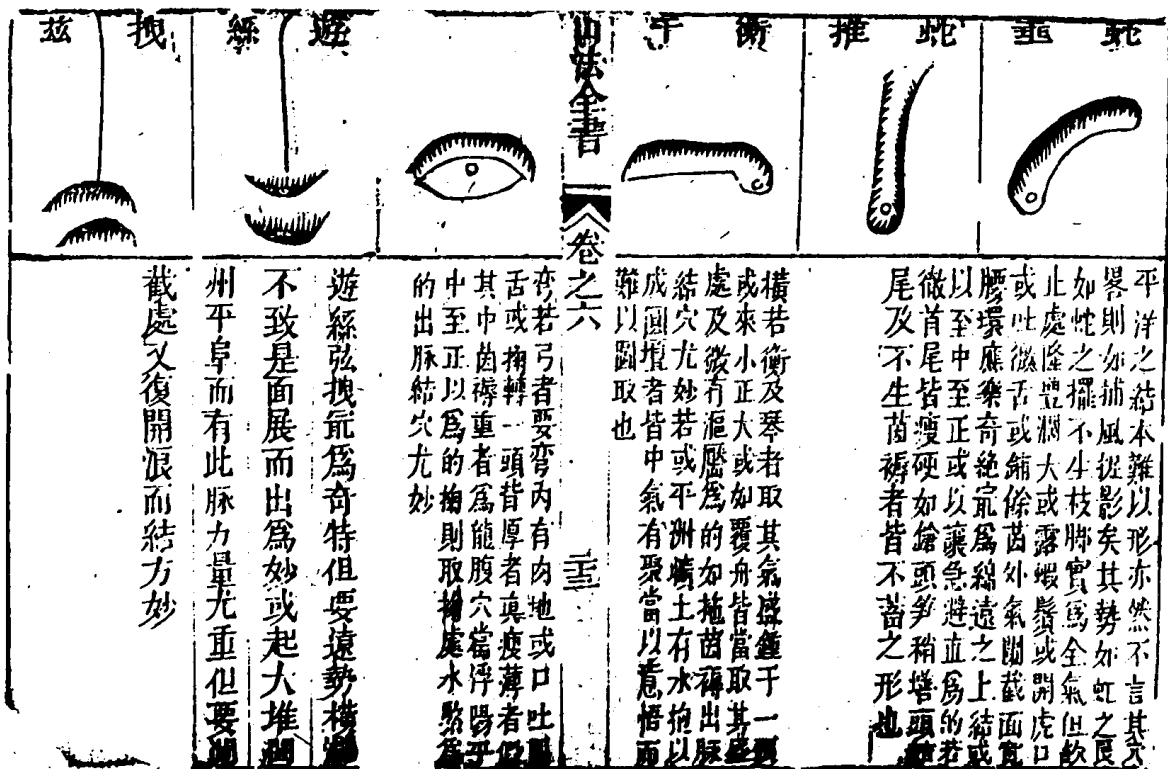 蛇 垂
蛇 推
衡 平
平洋之結本難以形亦然不言其
畧則如捕風捉影矣其勢如虹之
如蛇之擺不生枝脚實爲全氣但
止處隆豐濶大或露蝦鬚或開虎口
或吐微舌或鋪條茵外氣關截面
腰環應樂奇絶㝡爲綿遠之上結或
以至中至正或以讓急避直爲的若
微首尾皆瘦硬如鎗頭笋稍
尾及不生茵褥者皆不蓄之形也
橫若衡及琴者取其氣盛鍾于一
或來小正大或如覆舟皆當取其
處及微有漚靨爲的如拖茵褥出脉
結穴尤妙若或平洲
土有水抱以
成圓墩者皆中氣有聚當以意悟而
難以圖取也
山法全書
卷之六
遊 絲
拽 玆
弯若弓者要弯内有肉地或口吐
舌或掬轉一頭皆厚者真瘦薄者假
其中茵褥重者爲龍腹穴當浮陽乎
中至正以爲的掬則取掬處水
的出脉結穴尤妙
遊絲弦拽㝡爲奇特但要遠勢橫
不致是面展而出爲妙或起大堆
州平阜而有此脉力量尤重但要
截處又復開痕而結方妙